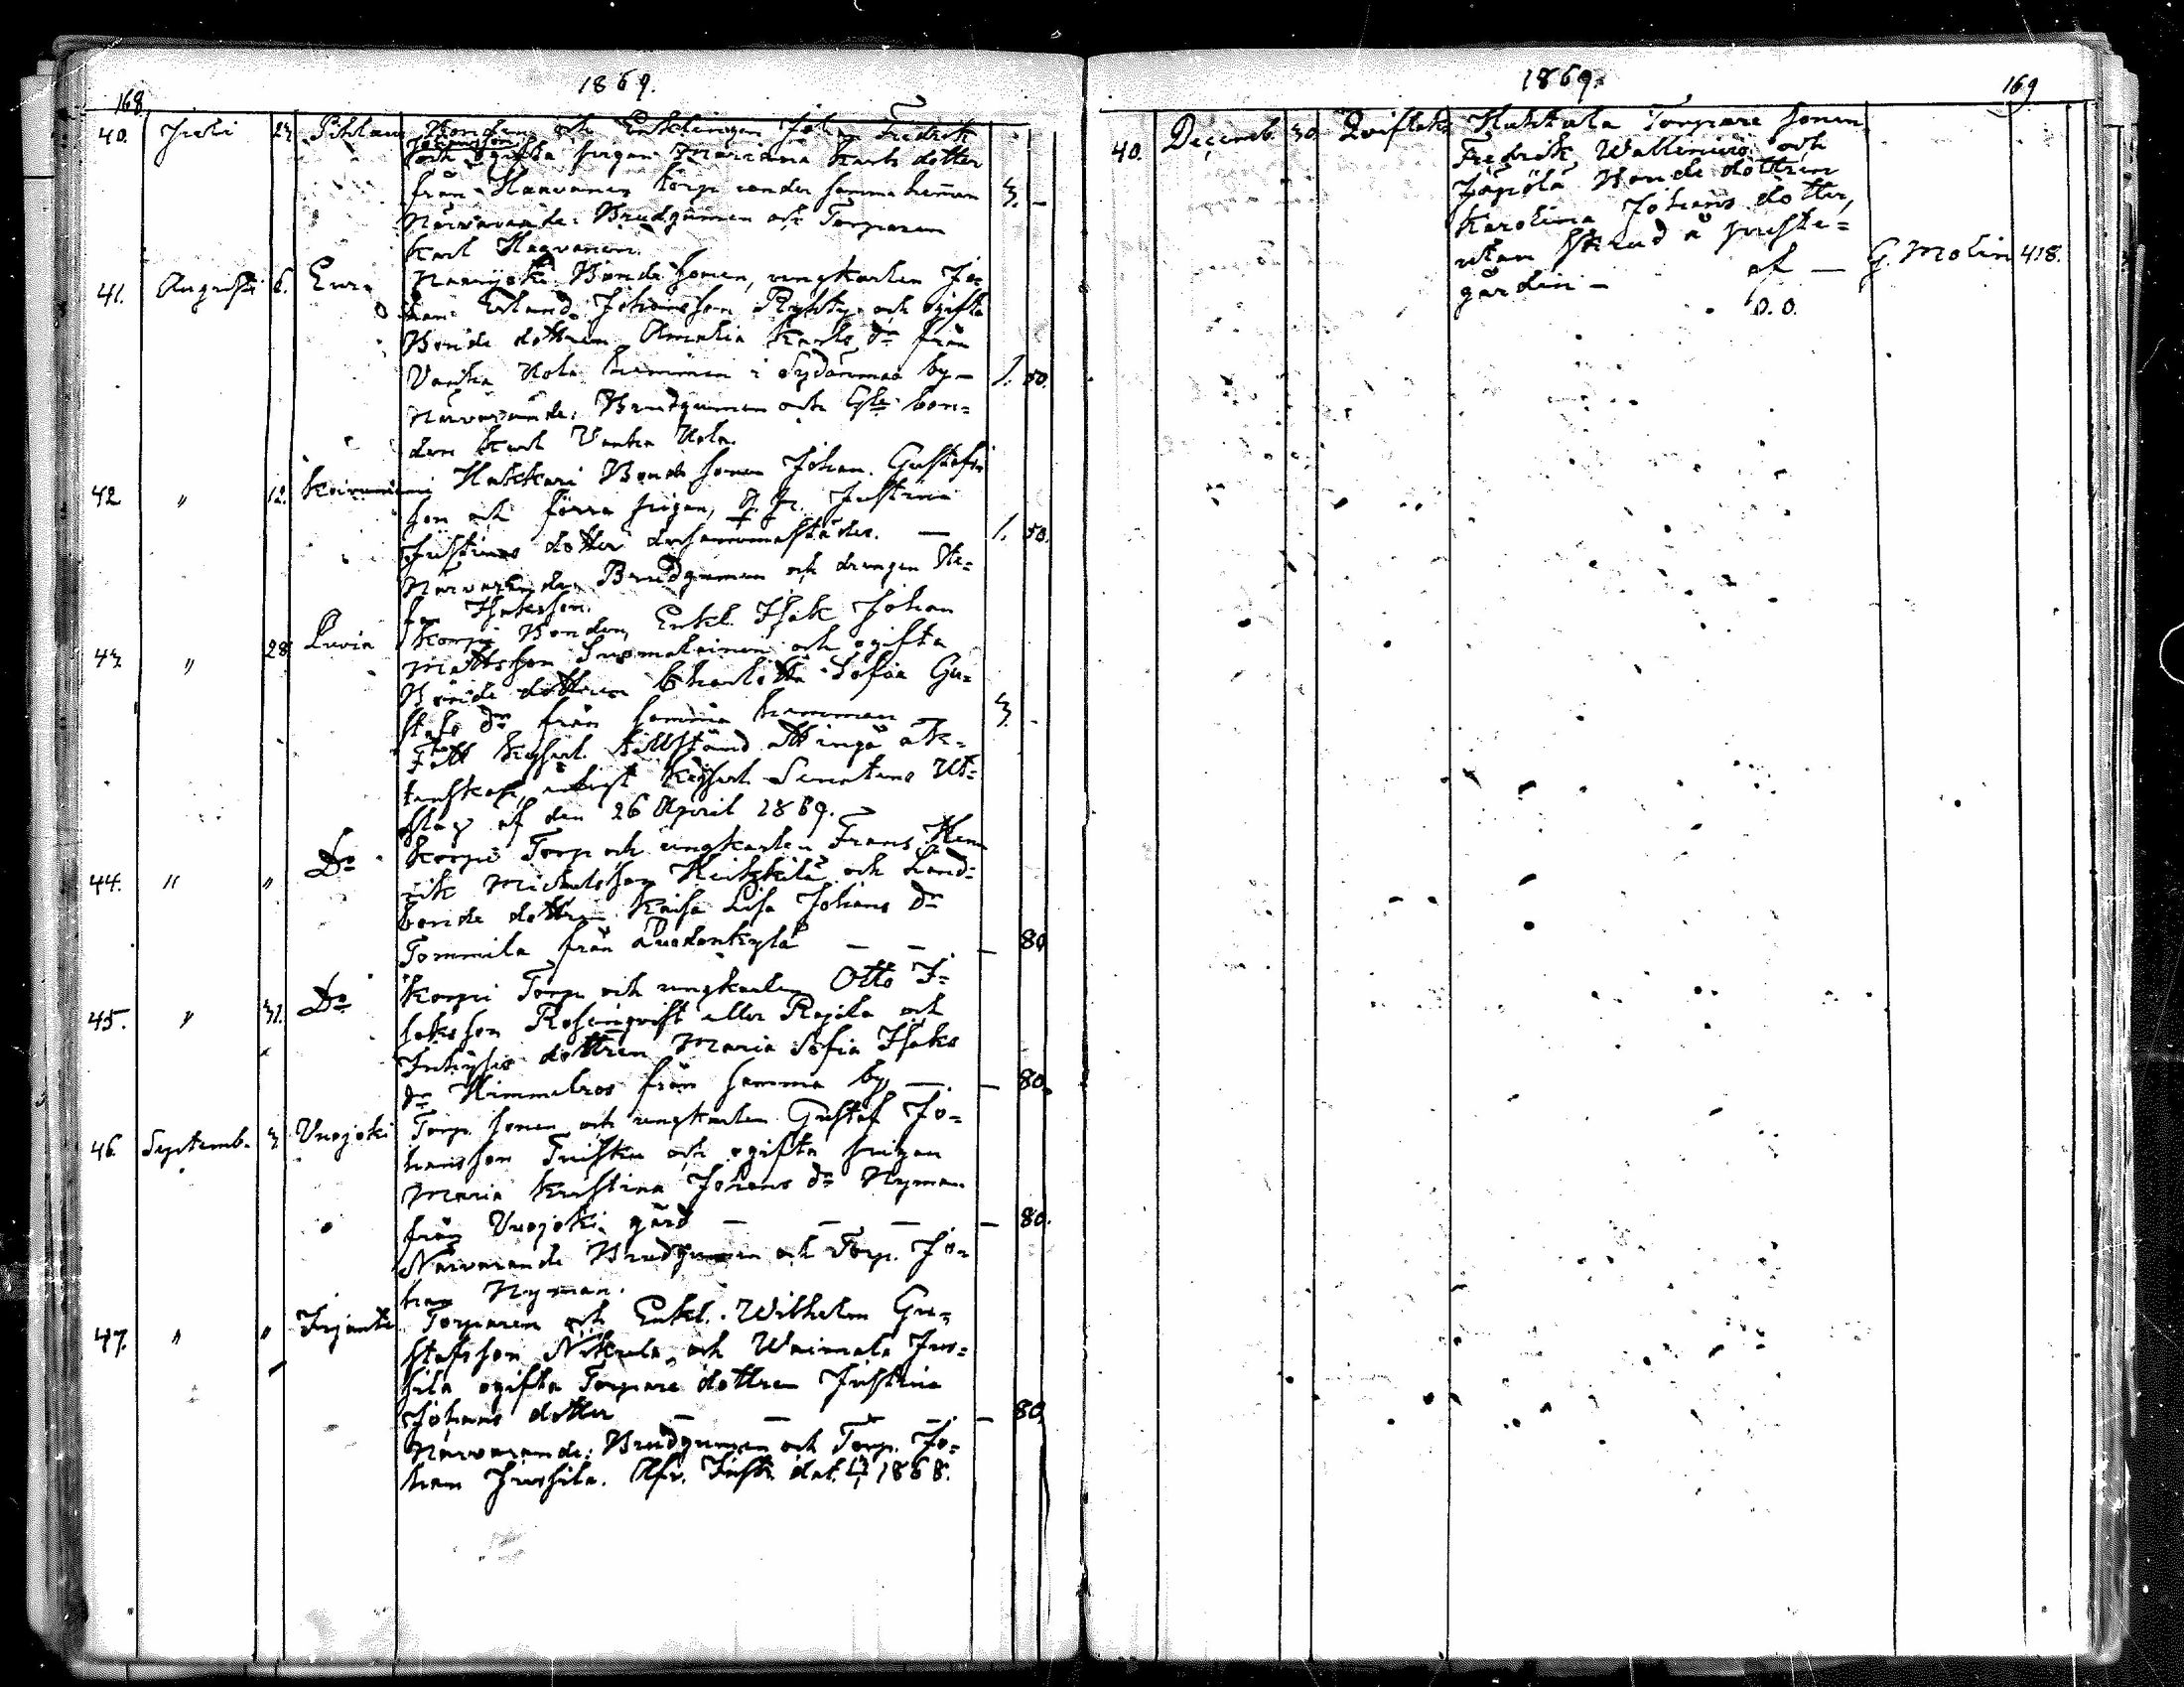 168
1869.
40. Juli 23. Pihlava Bonden och Enklingen Joh. Fredrik
Johansson
och ogifta pigan Mariana Karls dotter
från Haavanen torp under samma hemman 3. –
Närvarande: Brudgummen och Torparen
Karl Haavanen.
41. August 6. Eura Naarjoki Bonde sonen, ungkarlen Jo-
han Erland Johansson Rykty och ogifta
Bonde dottren Amalia Karls dr från
Vanha Kola hemman i Sydänmaa by – 1. 50.
Närvarande: Brudgummen och bon=
den Karl Vanha Kola.
42 " 12. Hakkari Bonde sonen Johan Gustafs
son och förra pigan, Justina
Justinas dotter dersammastädes. — 1. 50.
Närvarande Brudgummen och drengen
Isaksson.
43. " 28 Luvia Korpi Bonden, Enkl. Isak Johan
Mattsson Suomalainen och ogifta
Bonde dottren Charlotta Sofia Gu=
stafs dr från samma hemman – 3. -
Fått Kejserl. tillstånd att ingå äk=
tenskap, enligt Kejserl. Senatens Ut=
slag af den 26 April 1869.
44. " " Do Korpi Torp och ungkarlen Frans Hen
rik Michelsson Heikkilä och Land=
bonde dottren Kaisa Lisa Johans dr
Tommila från — — — 80
45. " 31. Do Korpi Torp och ungkarlen Otto I=
saksson Rosenqvist eller Rajila och
Inhyses dottren Maria Sofia Isaks
dr Himmelros från samma by —. — 80.
46 Septemb. 3 Vuojoki Torp. sonen och ungkarlen Gustaf Jo=
hansson Tuiska och ogifta pigan
Maria Kristina Johans dr Nyman
från Vuojoki gård — — — — 80.
Närvarande Brudgummen och Torp. Jo=
han Nyman.
47. " " Irjanti Torparen och Enkl. Wilhelm Gu=
stafsson Nikula och Jus=
sila ogifta Torpare dottren Justina
Johans dotter — — — — 80.
Närvarande: Brudgummen och Torp. Jo=
han Jussila. Afv. dat. 1868.
1869.
169
40. Decemb. 30. Huhtala Torpare sonen
Fredrik Wallenius och
Jäpölä Bonde dottren
Karolina Johans dotter,
utan å preste=
gården – af — G. Molin 418.
0.0.